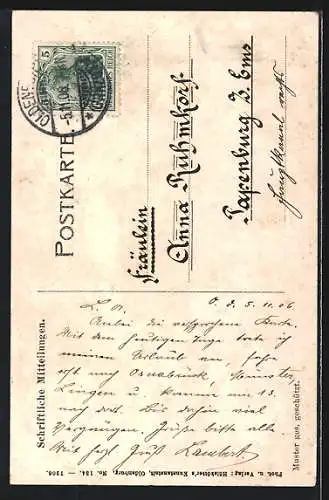 POSTKARTE
5
OLDENB
-5.11.06
Fräulein
Anna Ruhmkorf
Papenburg a. Ems
Hauptkanal rechts
Schriftliche Mitteilungen.
L. A. O. d. 5.11.06
Anbei die versprochene Karte.
Mit dem heutigen Tage trete ich
meinen Urlaub an, fahre
erst nach Osnabrück, Münster,
Lingen u. komme am 13.
nach dort. Bis dahin viel
Vergnügen. Grüße bitte alle.
Gruß Lambert
Phot. u. Verlag: Bildstöter's Kunstanstalt, Oldenburg. No. 134. 1906.
Muster ges. geschützt.